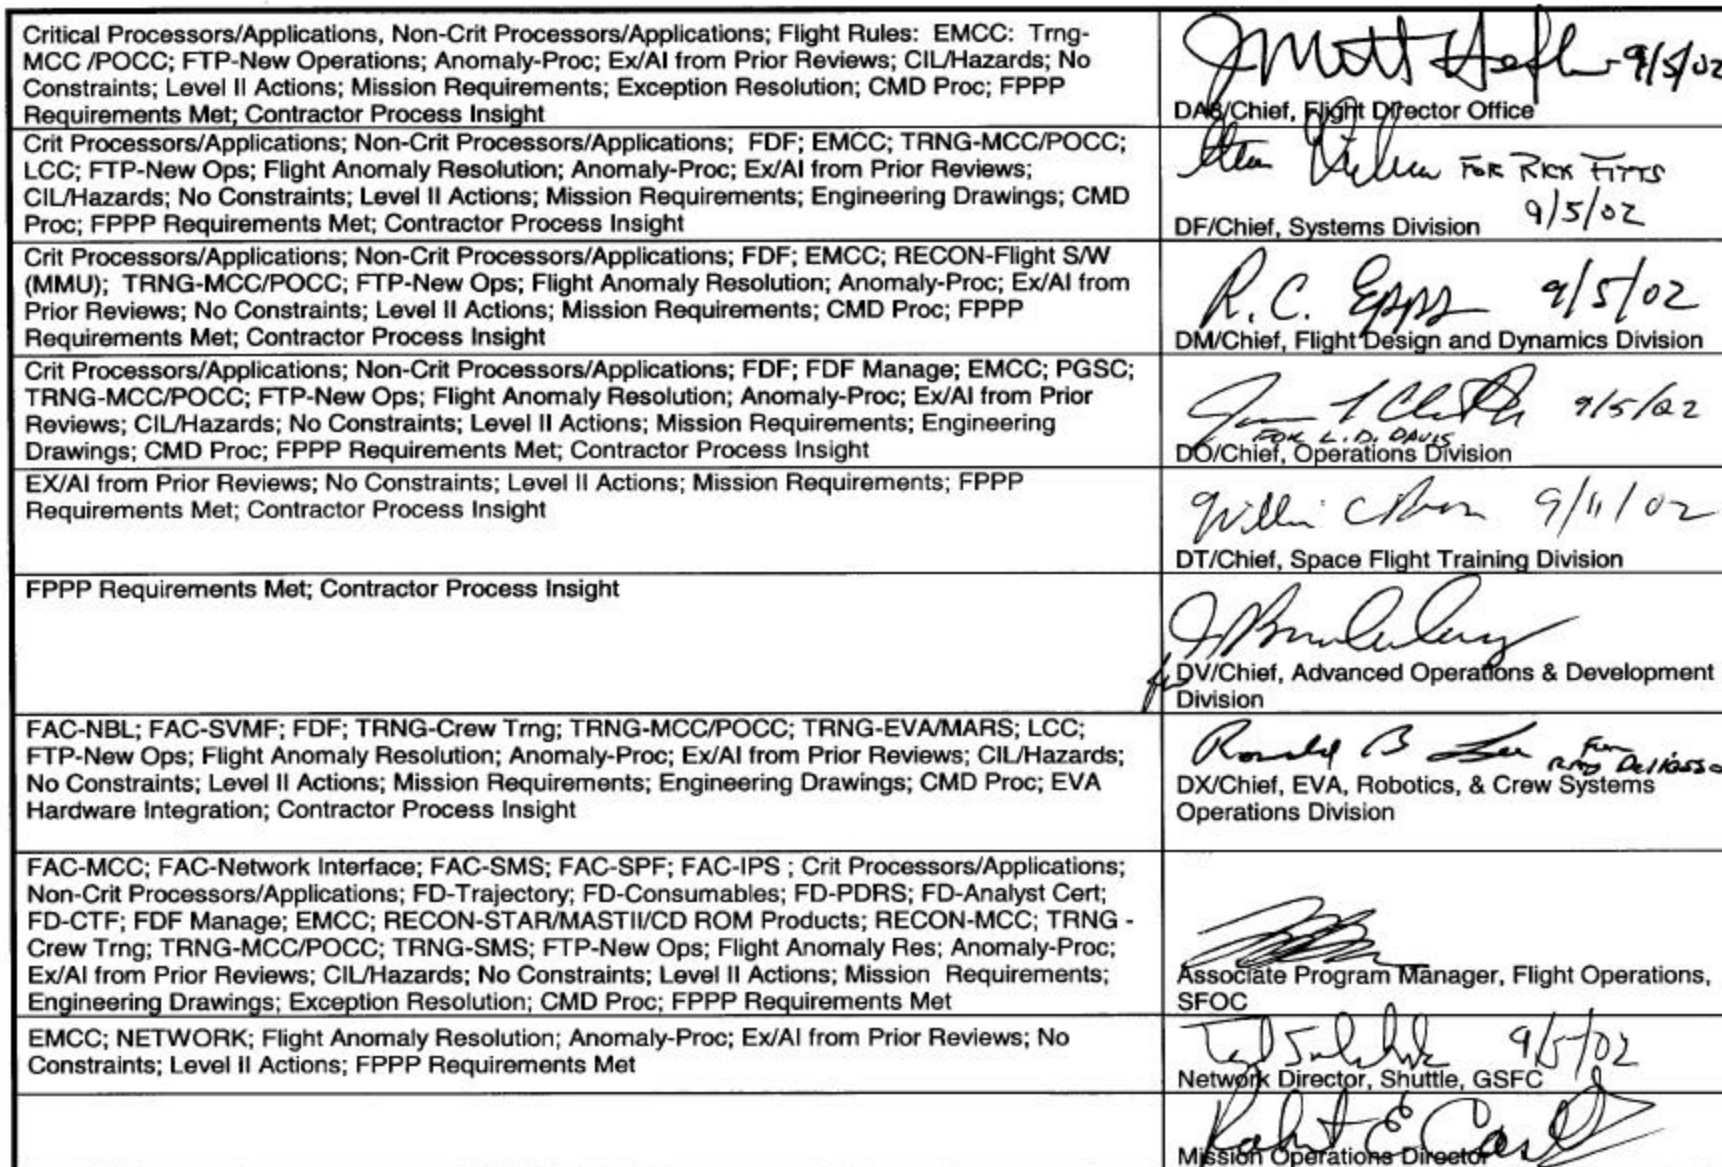 Critical Processors/Applications, Non-Crit Processors/Applications; Flight Rules: EMCC: Trng-
MCC /POCC; FTP-New Operations; Anomaly-Proc; Ex/AI from Prior Reviews; CIL/Hazards; No
Constraints; Level II Actions; Mission Requirements; Exception Resolution; CMD Proc; FPPP
Requirements Met; Contractor Process Insight
9/5/02
DA8/Chief, Flight Director Office
Crit Processors/Applications; Non-Crit Processors/Applications; FDF; EMCC; TRNG-MCC/POCC;
LCC; FTP-New Ops; Flight Anomaly Resolution; Anomaly-Proc; Ex/AI from Prior Reviews;
CIL/Hazards; No Constraints; Level II Actions; Mission Requirements; Engineering Drawings; CMD
Proc; FPPP Requirements Met; Contractor Process Insight
FOR RICK FITTS
9/5/02
DF/Chief, Systems Division
Crit Processors/Applications; Non-Crit Processors/Applications; FDF; EMCC; RECON-Flight S/W
(MMU); TRNG-MCC/POCC; FTP-New Ops; Flight Anomaly Resolution; Anomaly-Proc; Ex/AI from
Prior Reviews; No Constraints; Level II Actions; Mission Requirements; CMD Proc; FPPP
Requirements Met; Contractor Process Insight
R. C. Epps 9/5/02
DM/Chief, Flight Design and Dynamics Division
Crit Processors/Applications; Non-Crit Processors/Applications; FDF; FDF Manage; EMCC; PGSC;
TRNG-MCC/POCC; FTP-New Ops; Flight Anomaly Resolution; Anomaly-Proc; Ex/AI from Prior
Reviews; CIL/Hazards; No Constraints; Level II Actions; Mission Requirements; Engineering
Drawings; CMD Proc; FPPP Requirements Met; Contractor Process Insight
9/5/02
FOR L. D. DAVIS
DO/Chief, Operations Division
EX/AI from Prior Reviews; No Constraints; Level II Actions; Mission Requirements; FPPP
Requirements Met; Contractor Process Insight
9/11/02
DT/Chief, Space Flight Training Division
FPPP Requirements Met; Contractor Process Insight
for
DV/Chief, Advanced Operations & Development
Division
FAC-NBL; FAC-SVMF; FDF; TRNG-Crew Trng; TRNG-MCC/POCC; TRNG-EVA/MARS; LCC;
FTP-New Ops; Flight Anomaly Resolution; Anomaly-Proc; Ex/AI from Prior Reviews; CIL/Hazards;
No Constraints; Level II Actions; Mission Requirements; Engineering Drawings; CMD Proc; EVA
Hardware Integration; Contractor Process Insight
Ronald B Lee For
DX/Chief, EVA, Robotics, & Crew Systems
Operations Division
FAC-MCC; FAC-Network Interface; FAC-SMS; FAC-SPF; FAC-IPS ; Crit Processors/Applications;
Non-Crit Processors/Applications; FD-Trajectory; FD-Consumables; FD-PDRS; FD-Analyst Cert;
FD-CTF; FDF Manage; EMCC; RECON-STAR/MASTII/CD ROM Products; RECON-MCC; TRNG -
Crew Trng; TRNG-MCC/POCC; TRNG-SMS; FTP-New Ops; Flight Anomaly Res; Anomaly-Proc;
Ex/AI from Prior Reviews; CIL/Hazards; No Constraints; Level II Actions; Mission Requirements;
Engineering Drawings; Exception Resolution; CMD Proc; FPPP Requirements Met
Associate Program Manager, Flight Operations,
SFOC
EMCC; NETWORK; Flight Anomaly Resolution; Anomaly-Proc; Ex/AI from Prior Reviews; No
Constraints; Level II Actions; FPPP Requirements Met
9/5/02
Network Director, Shuttle, GSFC
Robert E
Mission Operations Director